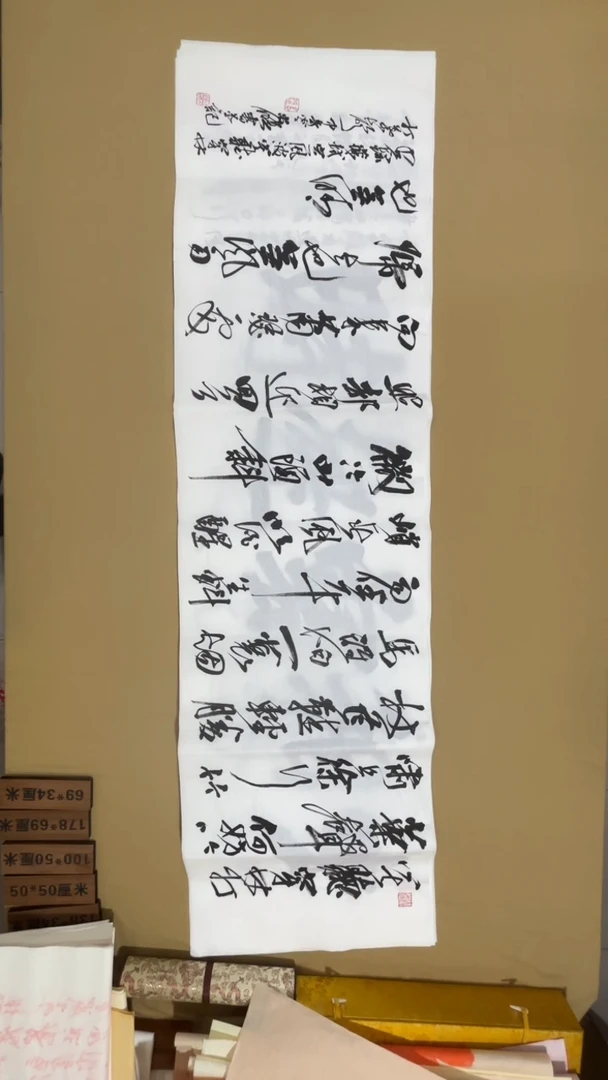 莫聽穿林打
葉聲何妨吟
嘯且徐行竹
杖芒鞋輕勝
馬誰怕一蓑烟
雨任平生料
峭春風吹酒醒
微冷山頭斜
照却相迎回首
向来蕭瑟處
歸去也无風雨
也无晴
69*34厘米
178*69厘米
100*50厘米
50*50厘米